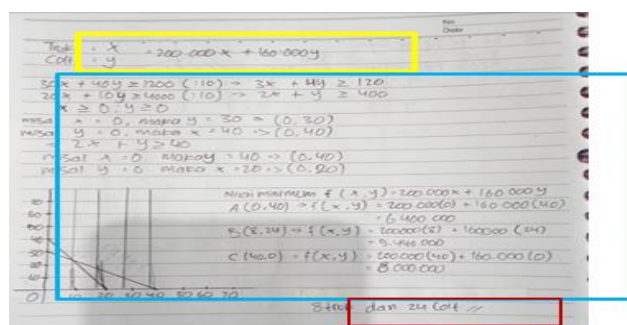 No
Date
Truk = x
Colt = y
= 200.000x + 160.000y
30x + 40y ≥ 1200 (:10) → 3x + 4y ≥ 120
20x + 10y ≥ 4000 (:10) → 2x + y ≥ 400
x ≥ 0; y ≥ 0
misal x = 0, maka y = 30 → (0,30)
misal y = 0, maka x = 40 → (0,40)
= 2x + y ≥ 40
misal x = 0 maka y = 40 → (0,40)
misal y = 0 maka x = 20 → (0,20)
Nilai minimum f(x,y) = 200.000x + 160.000y
A(0,40) → f(x,y) = 200.000(0) + 160.000(40)
= 6.400.000
B(8,24) → f(x,y) = 200000(8) + 160000(24)
C(40,0) = f(x,y) = 200.000(40) + 160.000(0)
= 8.000.000
0 10 20 30 40 50 60 70
8 truk dan 24 Colt //